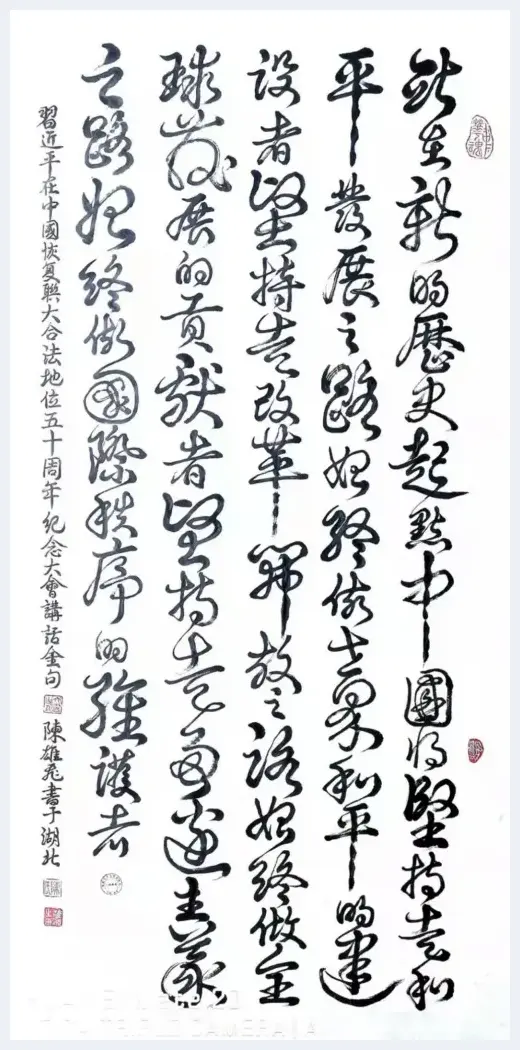 站在新的歷史起點中國将堅持走和
平發展之路始終做世界和平的建
设者堅持走改革開放之路始終做全
球發展的貢獻者堅持走多邊主義
之路始終做國際秩序的維護者
習近平在中國恢复聯大合法地位五十周年纪念大會講話金句 陳雄飛書于湖北